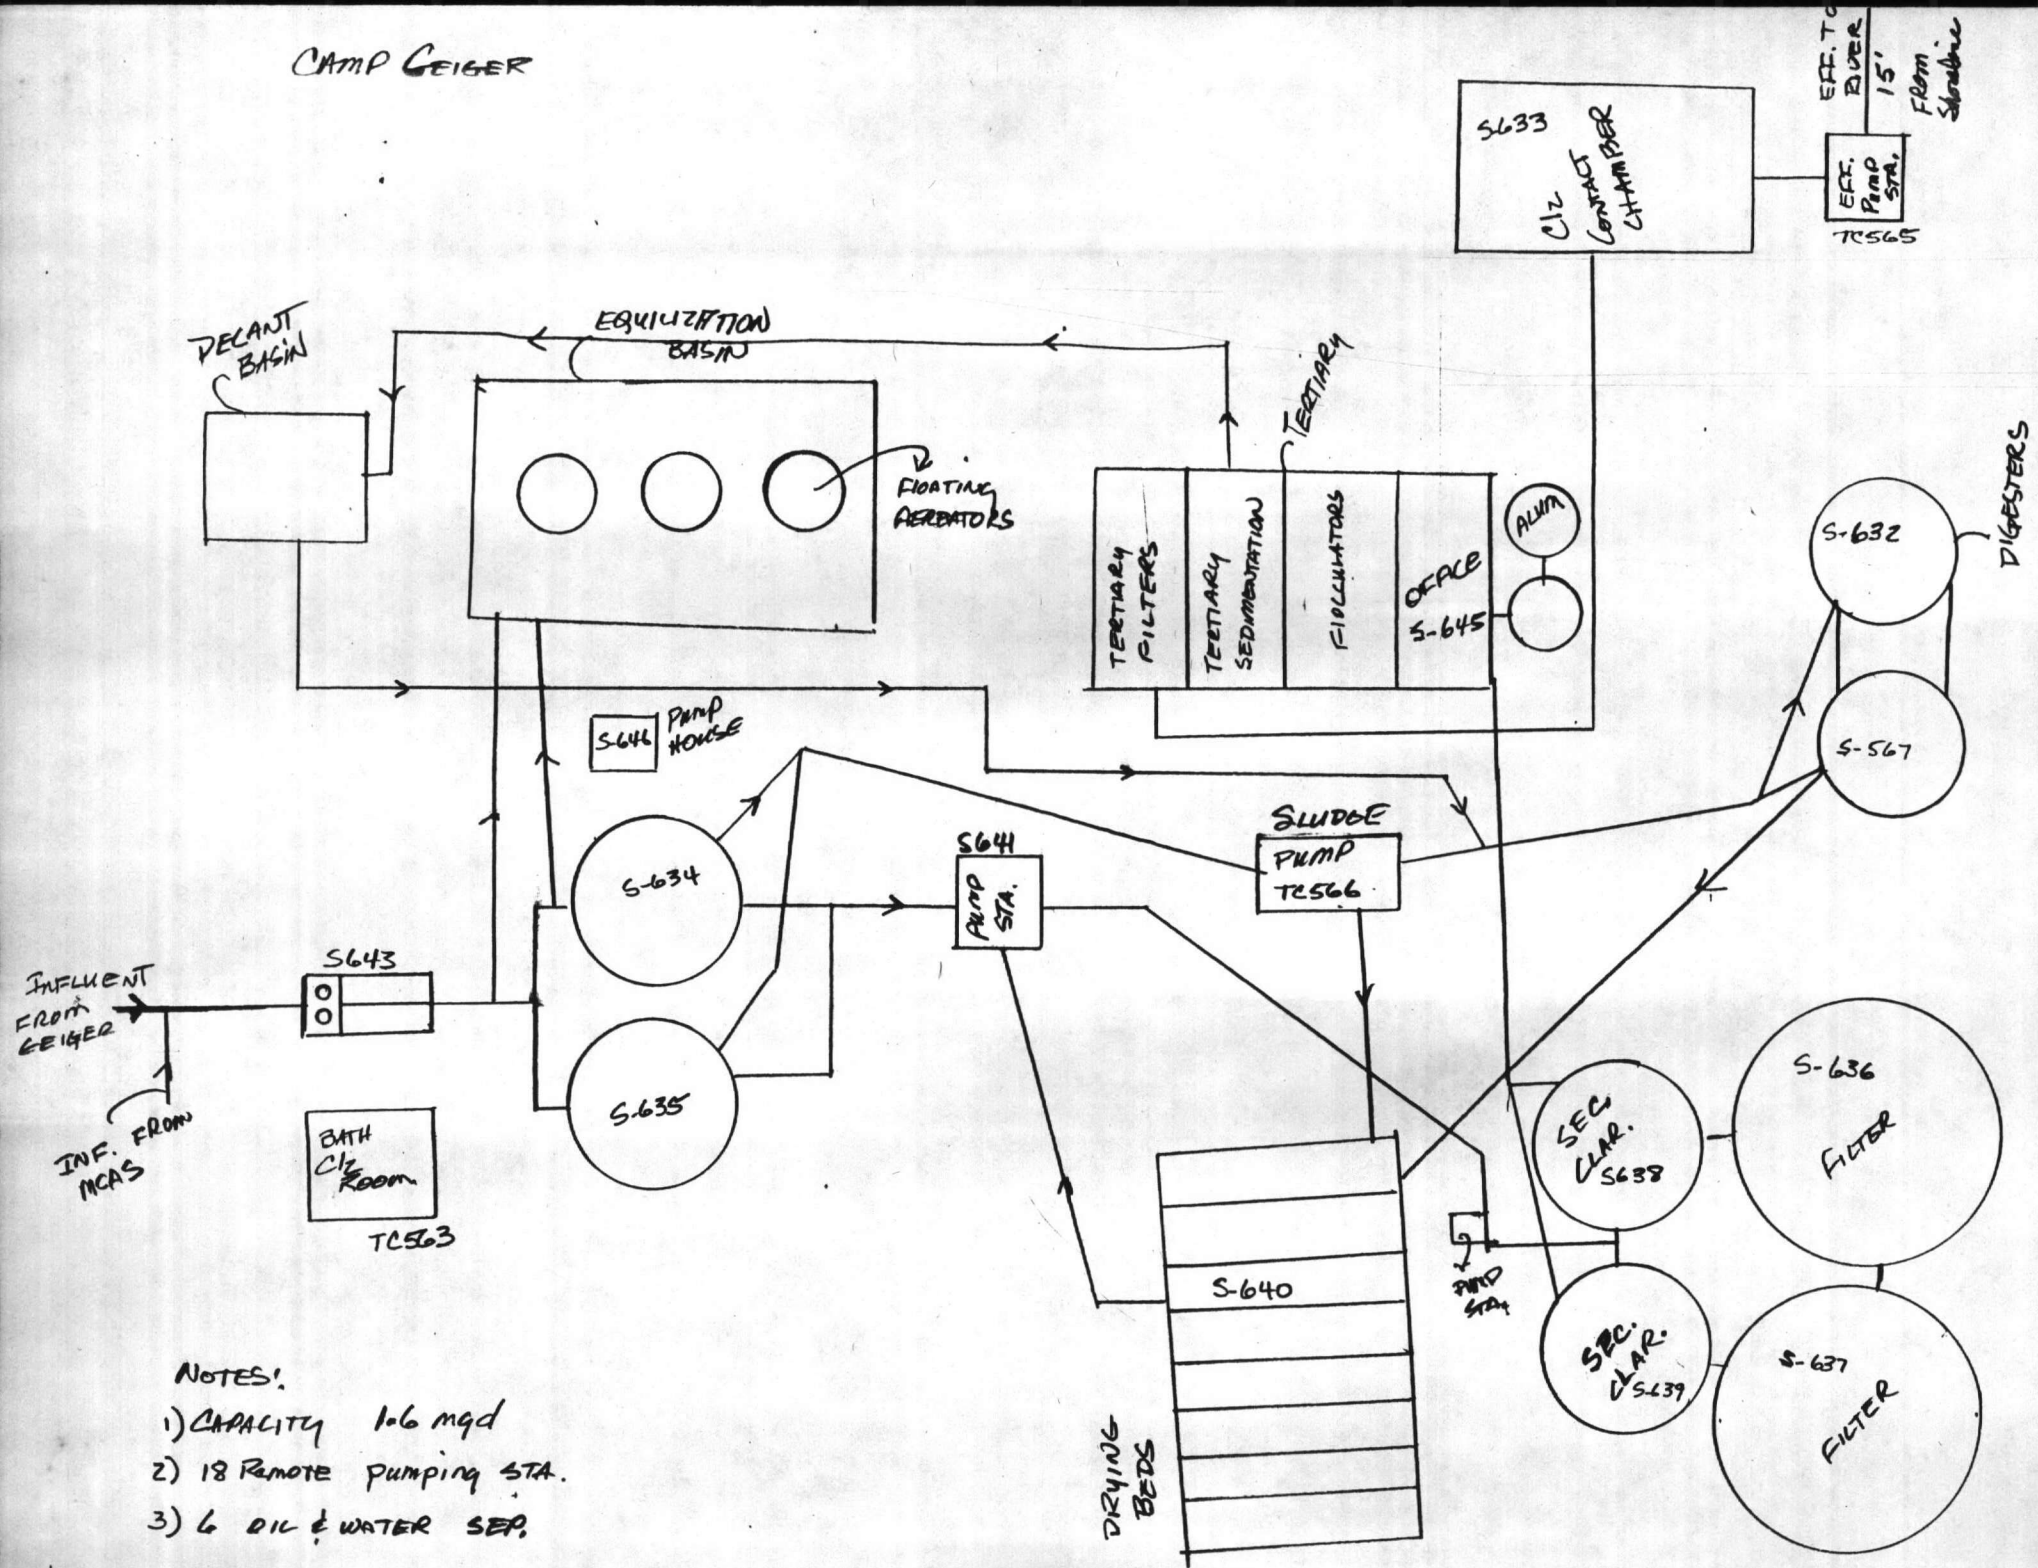 CAMP GEIGER
EFF. TO
RIVER
15'
FROM
Shoreline
S633
Cl2
CONTACT
CHAMBER
EFF.
PUMP
STA.
TC565
DECANT
BASIN
EQUILIZATION
BASIN
FLOATING
AEREATORS
TERTIARY
TERTIARY
FILTERS
TERTIARY
SEDIMENTATION
FLOCCULATORS
OFFICE
S-645
ALUM
S-632
DIGESTERS
S-567
S-646
PUMP
HOUSE
S-634
S641
PUMP
STA.
SLUDGE
PUMP
TC566
S643
INFLUENT
FROM
GEIGER
INF. FROM
MCAS
S-635
BATH
Cl2
Room
TC563
S-640
DRYING
BEDS
PUMP
STA.
SEC.
CLAR.
S638
S-636
FILTER
SEC.
CLAR.
S-639
S-637
FILTER
NOTES:
1) CAPACITY 1.6 mgd
2) 18 Remote pumping STA.
3) 6 OIL & WATER SEP.